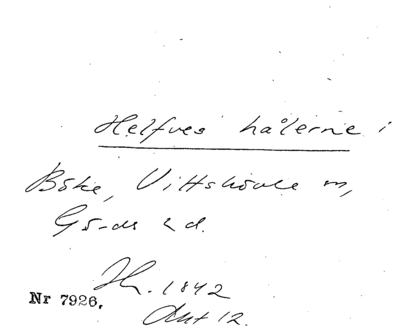 Helfves hålerne i
Böke, Vittskövle m,
Gärds h d.
1842
Nr 7926.
12.